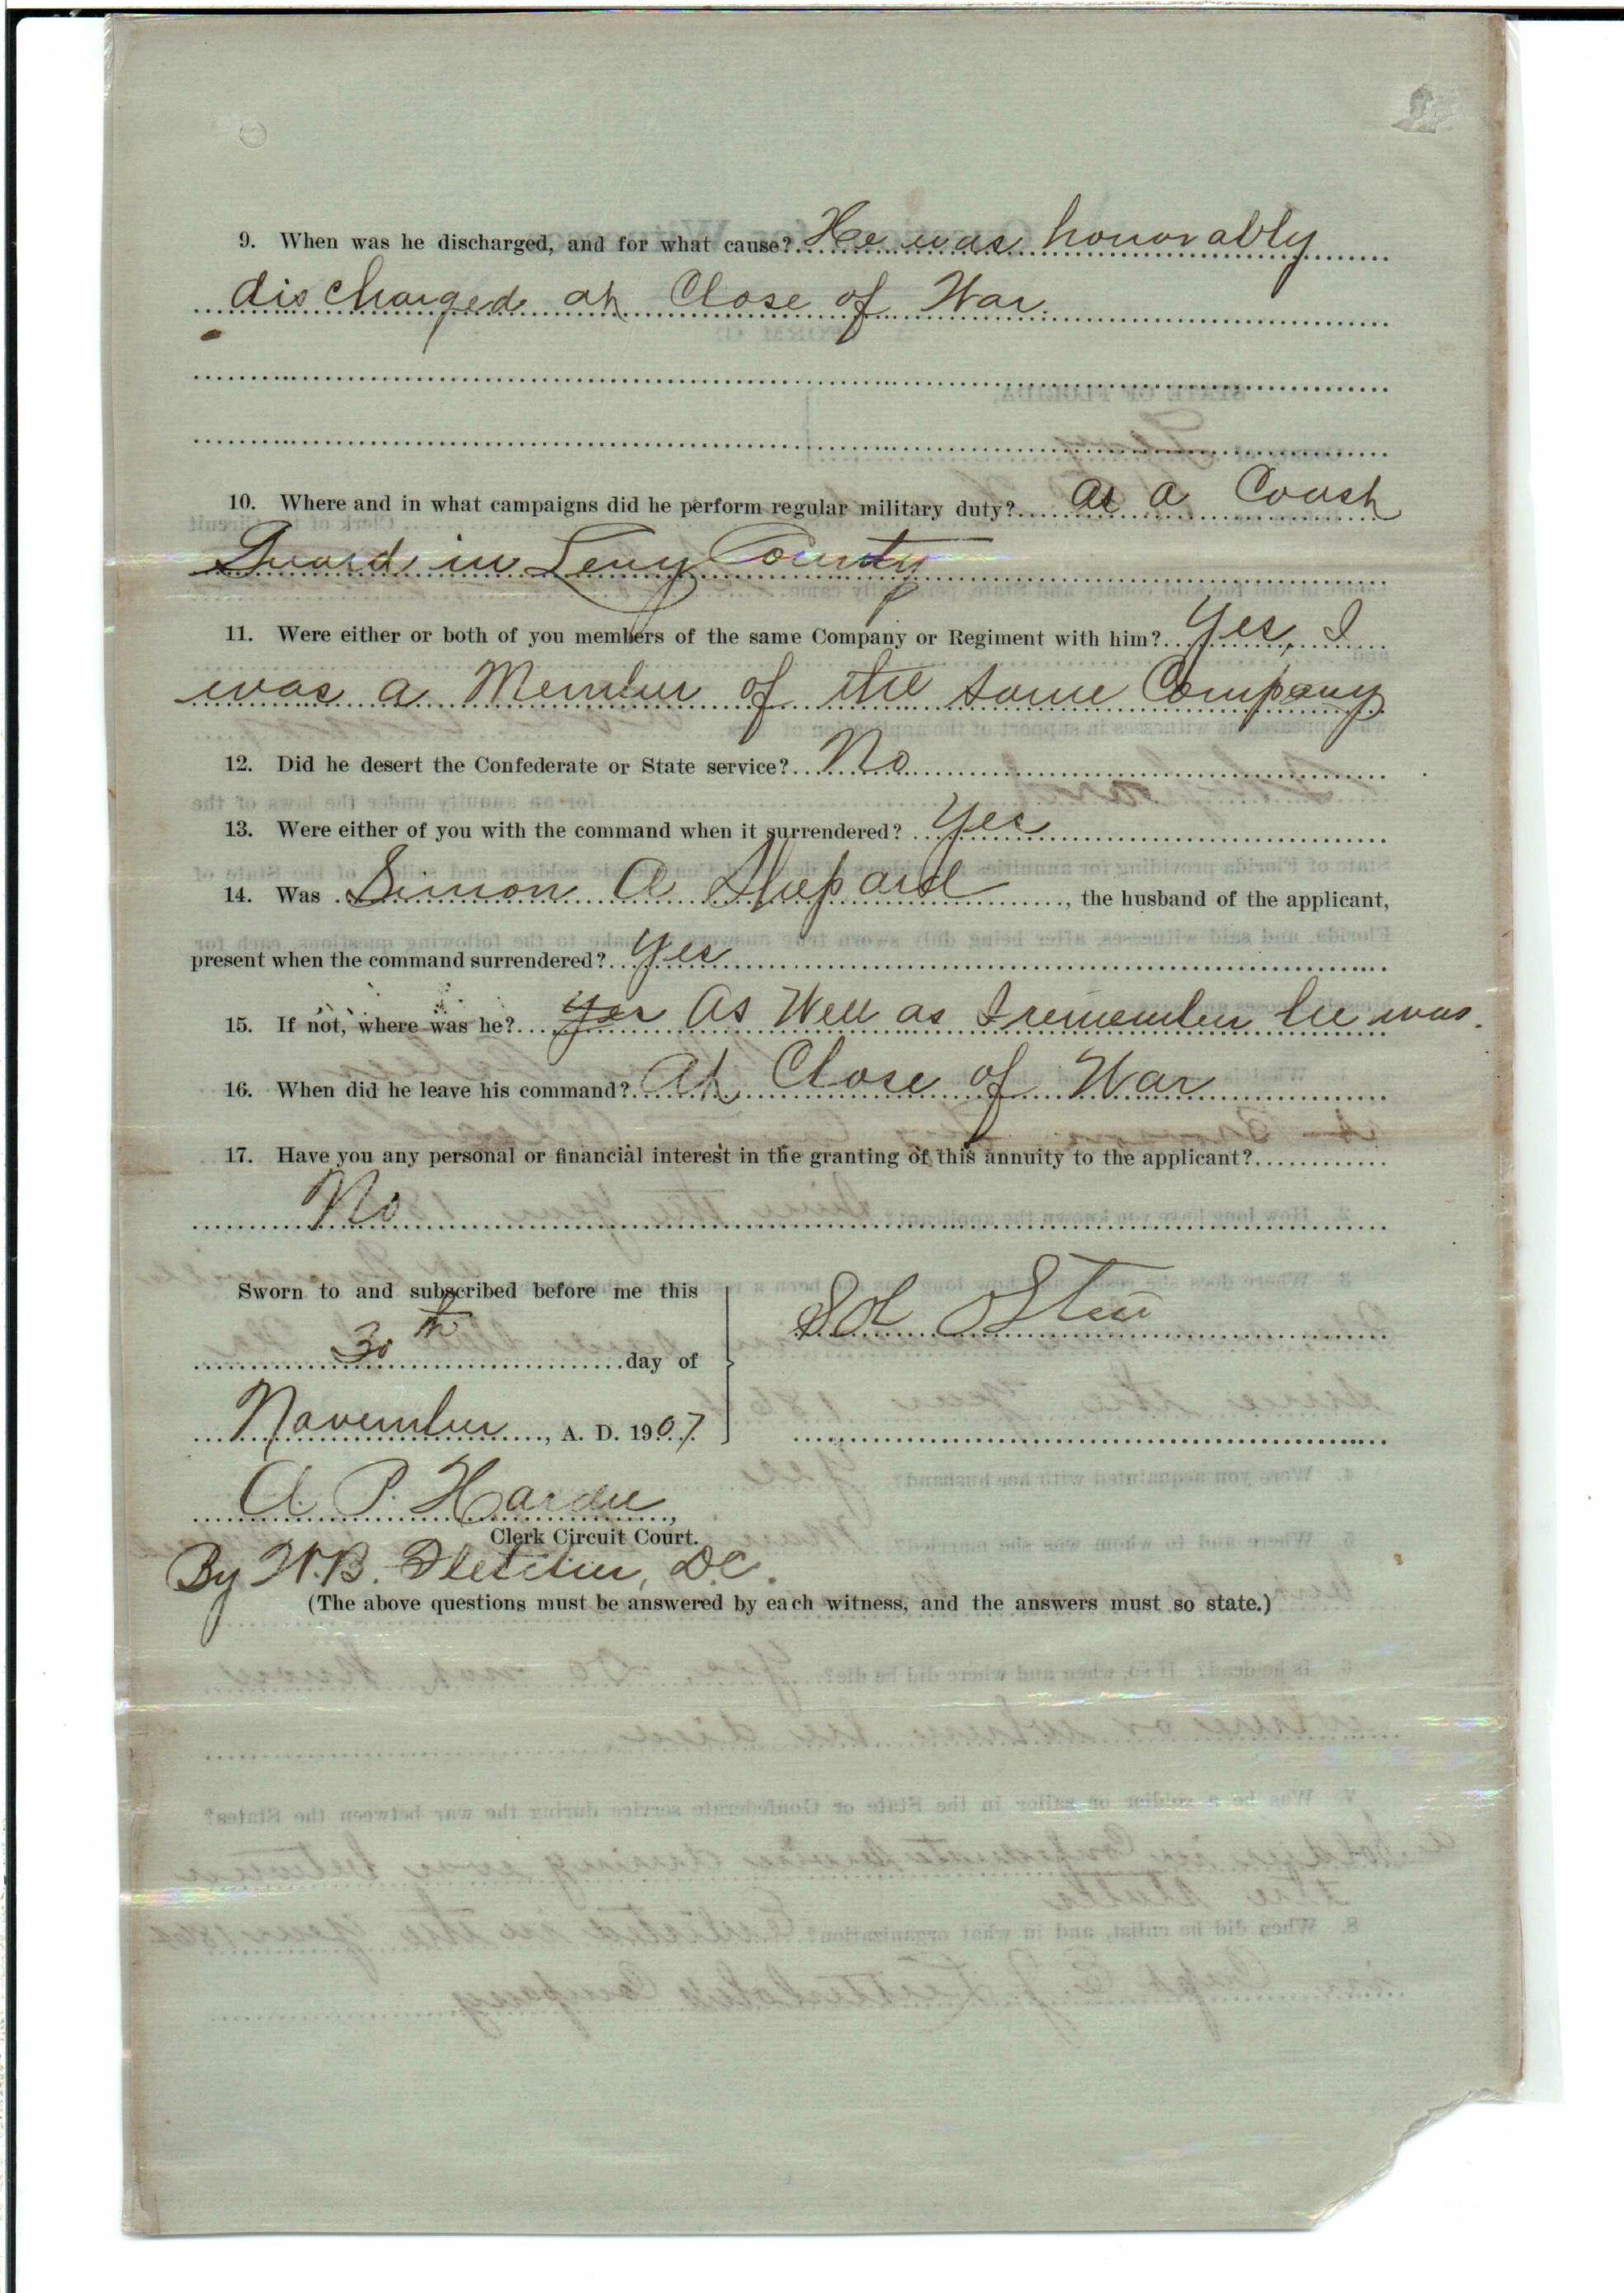 9. When was he discharged, and for what cause? He was honorably
discharged at Close of War.
10. Where and in what campaigns did he perform regular military duty? As a Coast
Guard in Levy County
11. Were either or both of you members of the same Company or Regiment with him? Yes, I
was a Member of the same Company
12. Did he desert the Confederate or State service? No
13. Were either of you with the command when it surrendered? Yes
14. Was Simon A Shepard, the husband of the applicant,
present when the command surrendered? Yes
15. If not, where was he? Yes As Well as I remember he was.
16. When did he leave his command? At Close of War
17. Have you any personal or financial interest in the granting of this annuity to the applicant?
No
Sworn to and subscribed before me this
30th day of
November, A. D. 1907
Sol
A. P. Hardee,
Clerk Circuit Court.
By W.B. Fletcher, D.C.
(The above questions must be answered by each witness, and the answers must so state.)